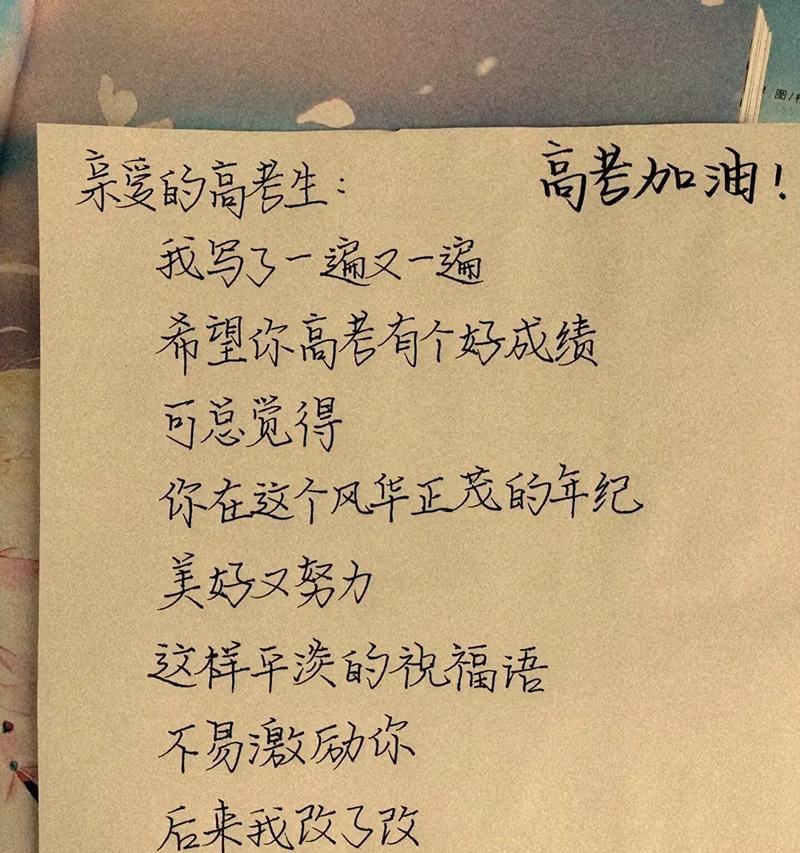 亲爱的高考生：
高考加油！
我写了一遍又一遍
希望你高考有个好成绩
可总觉得
你在这个风华正茂的年纪
美好又努力
这样平淡的祝福语
不易激励你
后来我改了改
图/